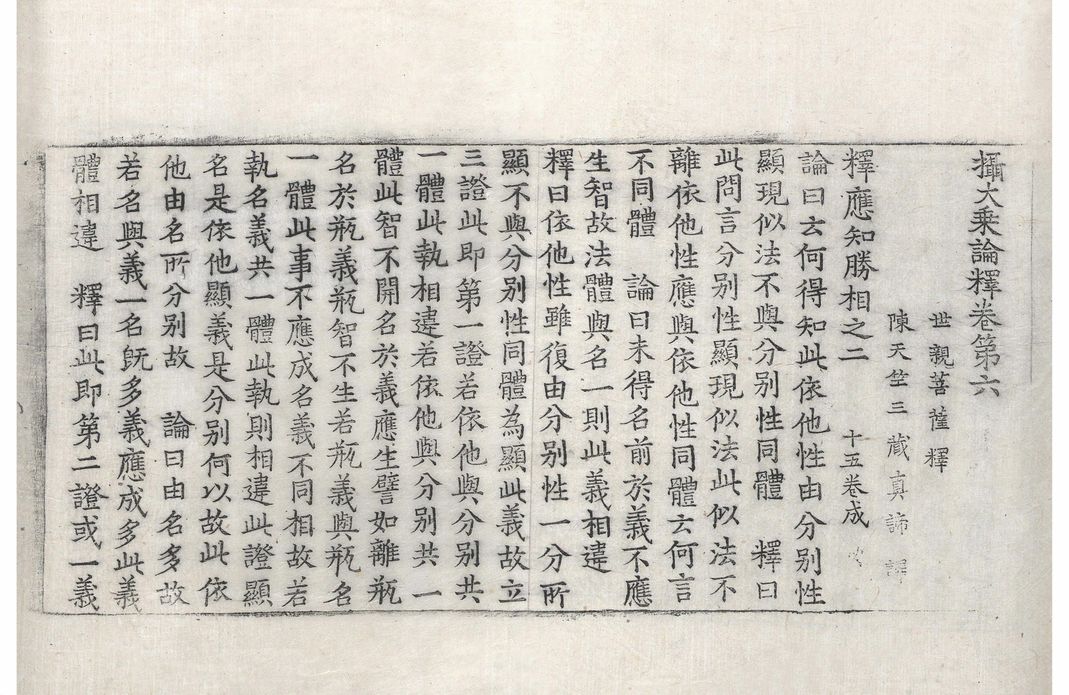 攝大乘論釋卷第六
世親菩薩釋
陳天竺三藏真諦譯
釋應知勝相之二　十五卷成
論曰云何得知此依他性由分別性
顯現似法不與分別性同體　釋曰
此問言分別性顯現似法此似法不
離依他性應與依他性同體云何言
不同體　論曰未得名前於義不應
生智故法體與名一則此義相違
釋曰依他性雖復由分別性一分所
顯不與分別性同體為顯此義故立
三證此即第一證若依他與分別共
一體此執相違若依他與分別共一
體此智不開名於義應生譬如離瓶
名於瓶義瓶智不生若瓶義與瓶名
一體此事不應成名義不同相故若
執名義共一體此執則相違此證顯
名是依他顯義是分別何以故此依
他由名所分別故　論曰由名多故
若名與義一名既多義應成多此義
體相違　釋曰此即第二證或一義